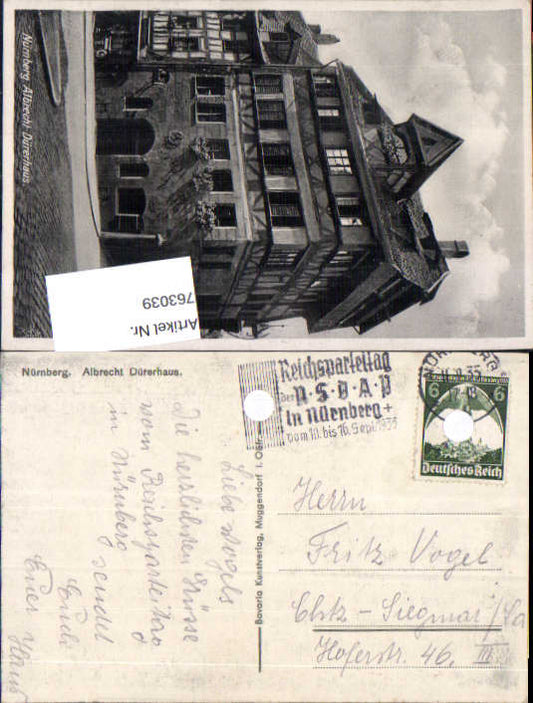 Nürnberg, Albrecht Dürerhaus
Artikel Nr.
763039
Nürnberg. Albrecht Dürerhaus.
Reichsparteitag
der N·S·D·A·P
in Nürnberg
vom 10. bis 16. Sept. 1935
6 6
Deutsches Reich
Liebe Vogels
Die herzlichsten Grüsse
vom Reichsparteitag
in Nürnberg sendet
Euch
Euer
Bavaria Kunstverlag, Muggendorf i. Obfr.
Herrn
Fritz Vogel
Chtz - Siegmar/Sa
Hoferstr. 46. III